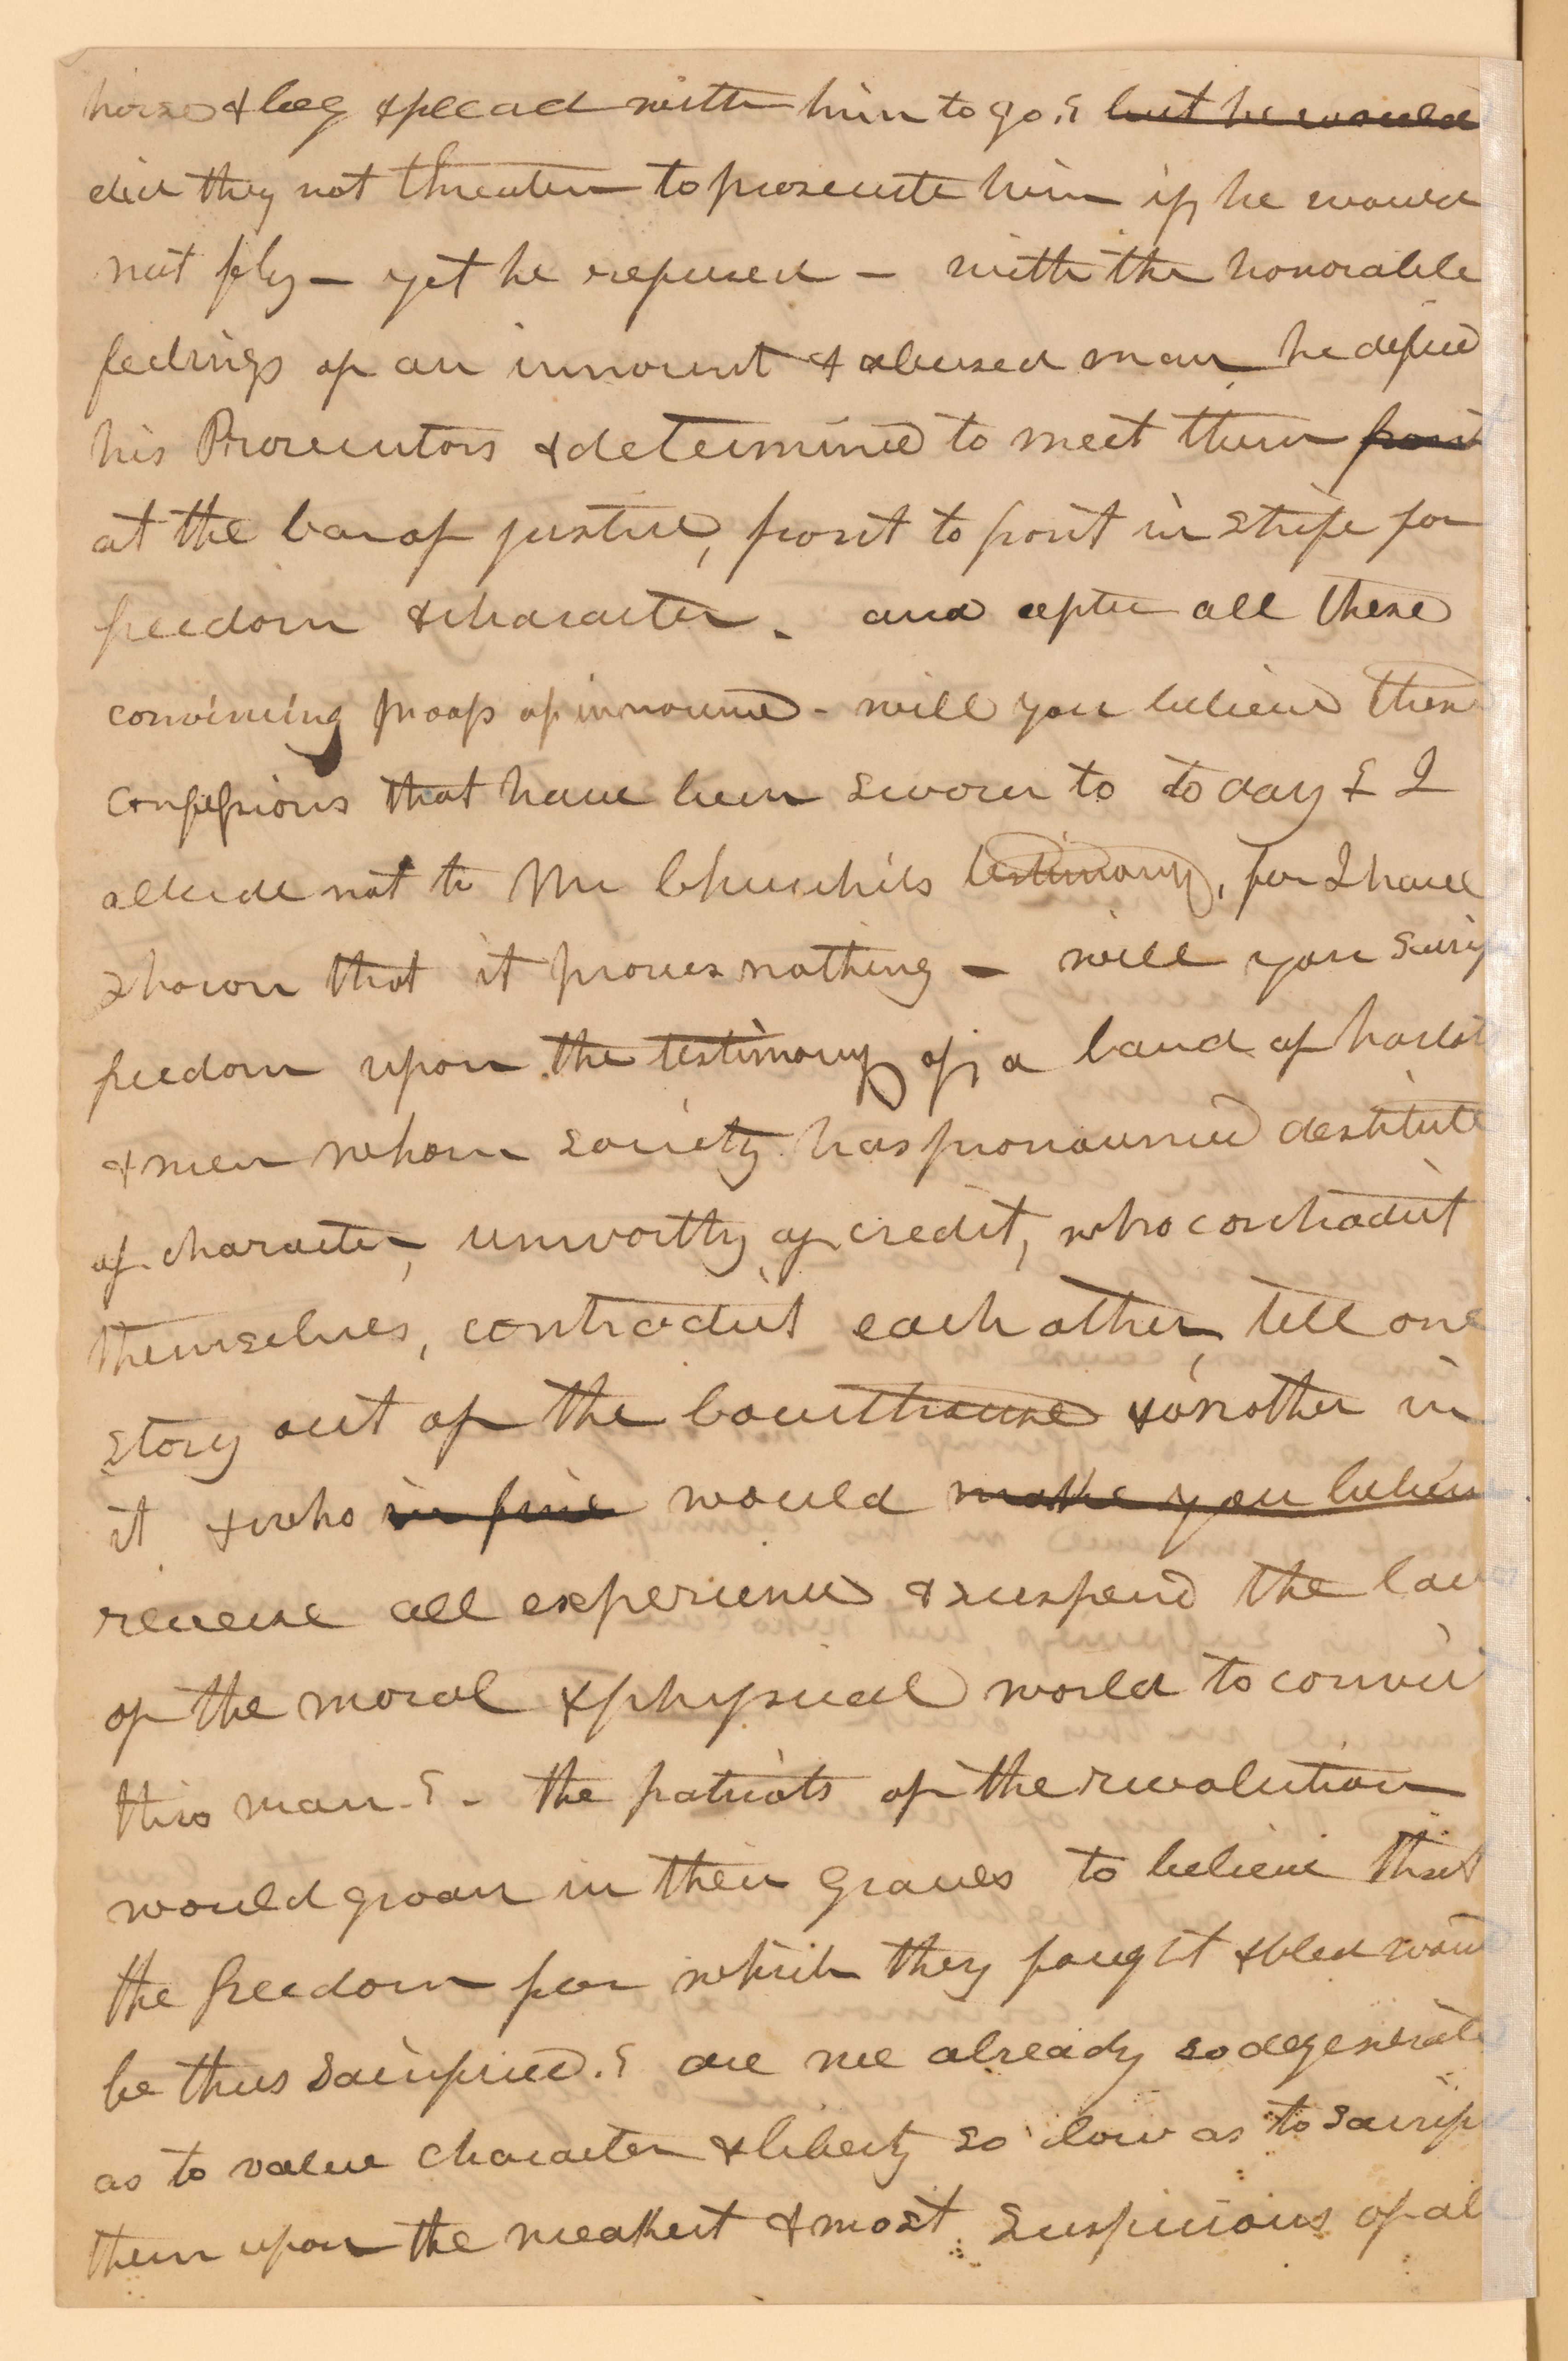 horse & beg & plead with him to go? but he would
did they not threaten to prosecute him if he would
not fly – yet he refused – with the honorable
feelings of an innocent & abused man he defied
his Prosecutors & determined to meet them front
at the bar of justice, front to front in strife for
freedom & character. and after all these
convincing proofs of innocence – will you believe these
confessions that have been sworn to to day? I
allude not to Mr Churchils testimony, for I have
shown that it proves nothing – will you
freedom upon the testimony of a band of harlot
& men whom society has pronounced destitute
of character, unworthy of credit, who contradict
themselves, contradict each other, tell one
story out of the Courthouse & another in
it & who in fine would make you believe
reverse all experience & suspend the law
of the moral & physical world to convict
this man? – the patriots of the revolution
would groan in their graves to believe that
the freedom for which they fought & bled would
be thus sacrificed.? are we already so degenerate
as to value character & liberty so low as to sacrif
them upon the weakest & most suspicious of al